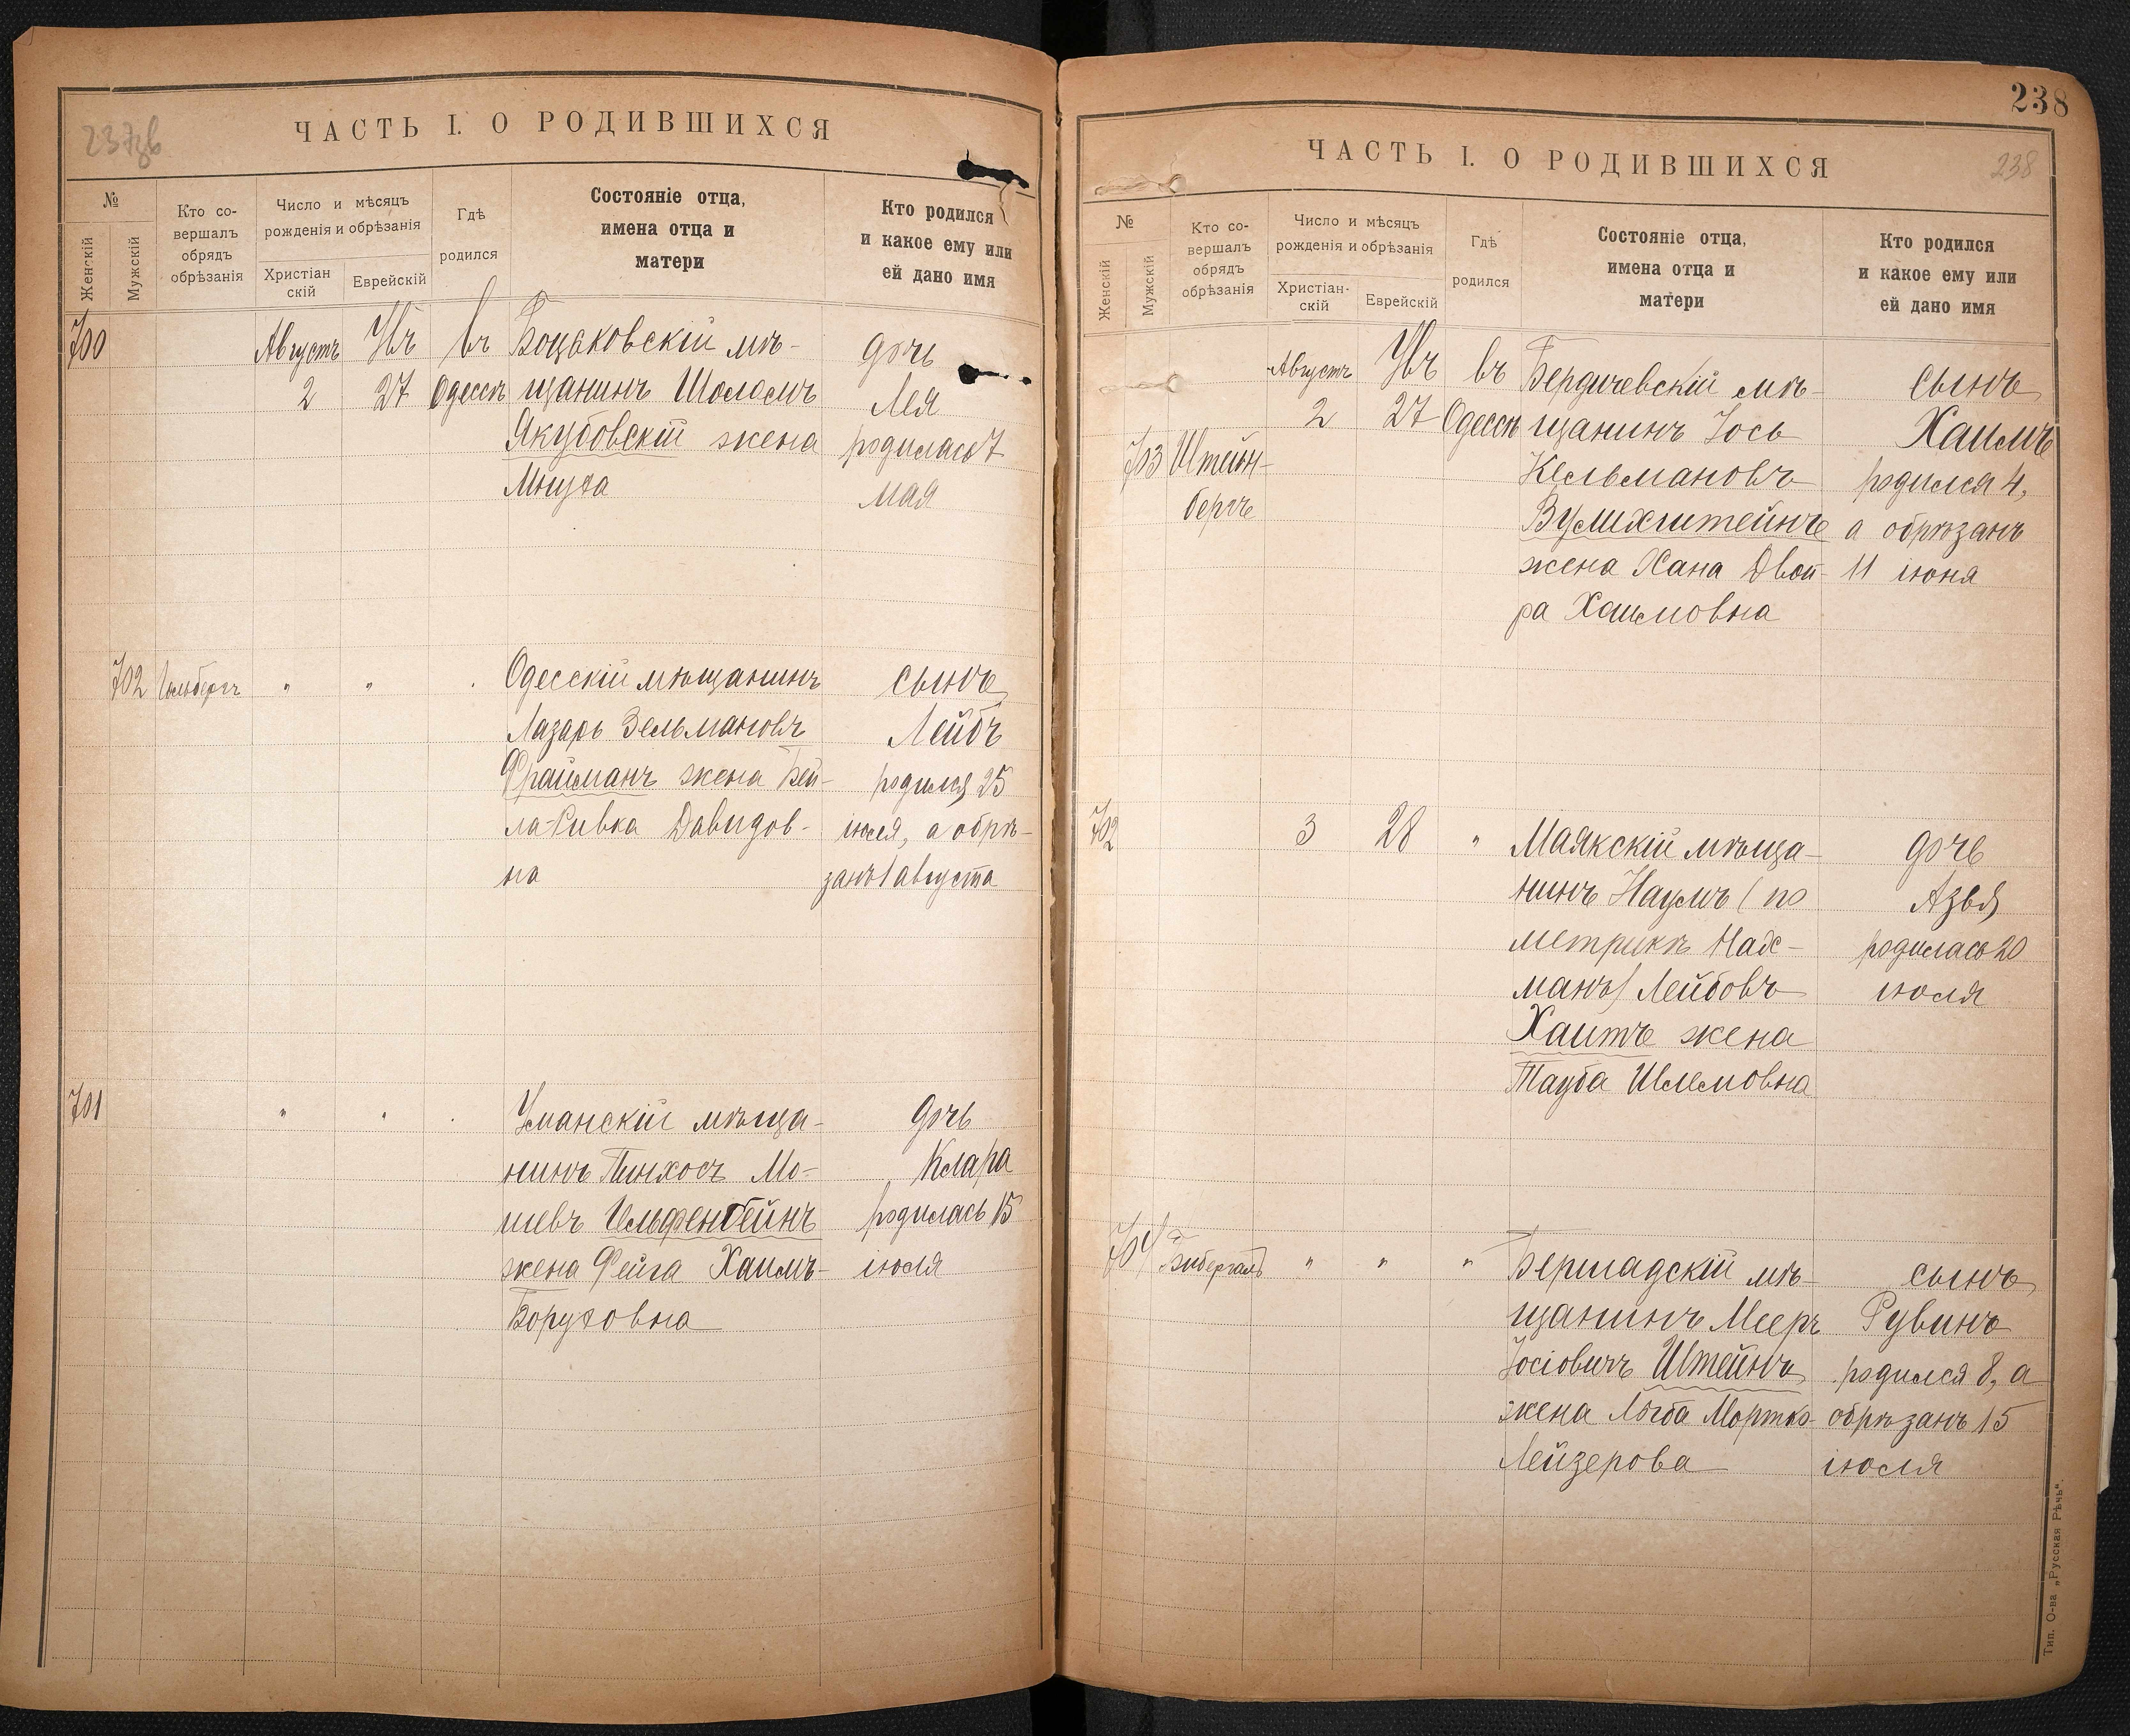 237зв
ЧАСТЬ I. О РОДИВШИХСЯ
№
Женскій
Мужскій
Кто со-
вершалъ
обрядъ
обрѣзанія
Число и мѣсяцъ
рожденія и обрѣзанія
Христіан
скій
Еврейскій
Гдѣ
родился
Состояніе отца,
имена отца и
матери
Кто родился
и какое ему или
ей дано имя
700 Августъ въ дочь
2 27 Одессѣ щанинъ Шоломъ Лея
Якубовскій жена родилась 7
мая
702 " " Одесскій мѣщанинъ сынъ
Лазарь Зельмановъ Лейбъ
Фрайманъ жена Бей- родился 25
ла-Ривка Давидов- іюля, а обрѣ-
на занъ 1 августа
701 " " Уманскій мѣща- дочь
нинъ Пинхосъ Мо- Клара
шевъ Гельфенбейнъ родилась 15
жена Фейга Хаимъ- іюля
Боруховна
238
ЧАСТЬ I. О РОДИВШИХСЯ
238
№
Женскій
Мужскій
Кто со-
вершалъ
обрядъ
обрѣзанія
Число и мѣсяцъ
рожденія и обрѣзанія
Христіан-
скій
Еврейскій
Гдѣ
родился
Состояніе отца,
имена отца и
матери
Кто родился
и какое ему или
ей дано имя
Августъ въ Бердичевскій мѣ- сынъ
2 27 Одессѣ щанинъ Іось Хаимъ
703 Штейн- Кельмановъ родился 4,
бергъ Вумихштейнъ а обрѣзанъ
жена Хана Двой- 11 іюня
ра Хаимовна
702 3 28 " Маякскій мѣща- дочь
нинъ Наумъ (по Азья
метрикѣ Нах- родилась 20
манъ) Лейбовъ іюля
Хаитъ жена
Тауба
704 " " " Бершадскій мѣ- сынъ
щанинъ Мееръ Рувинъ
Іосіовичъ Штейнъ родился 8, а
жена Мортко- обрѣзанъ 15
Лейзерова іюля
Тип. О-ва „Русская Рѣчь".